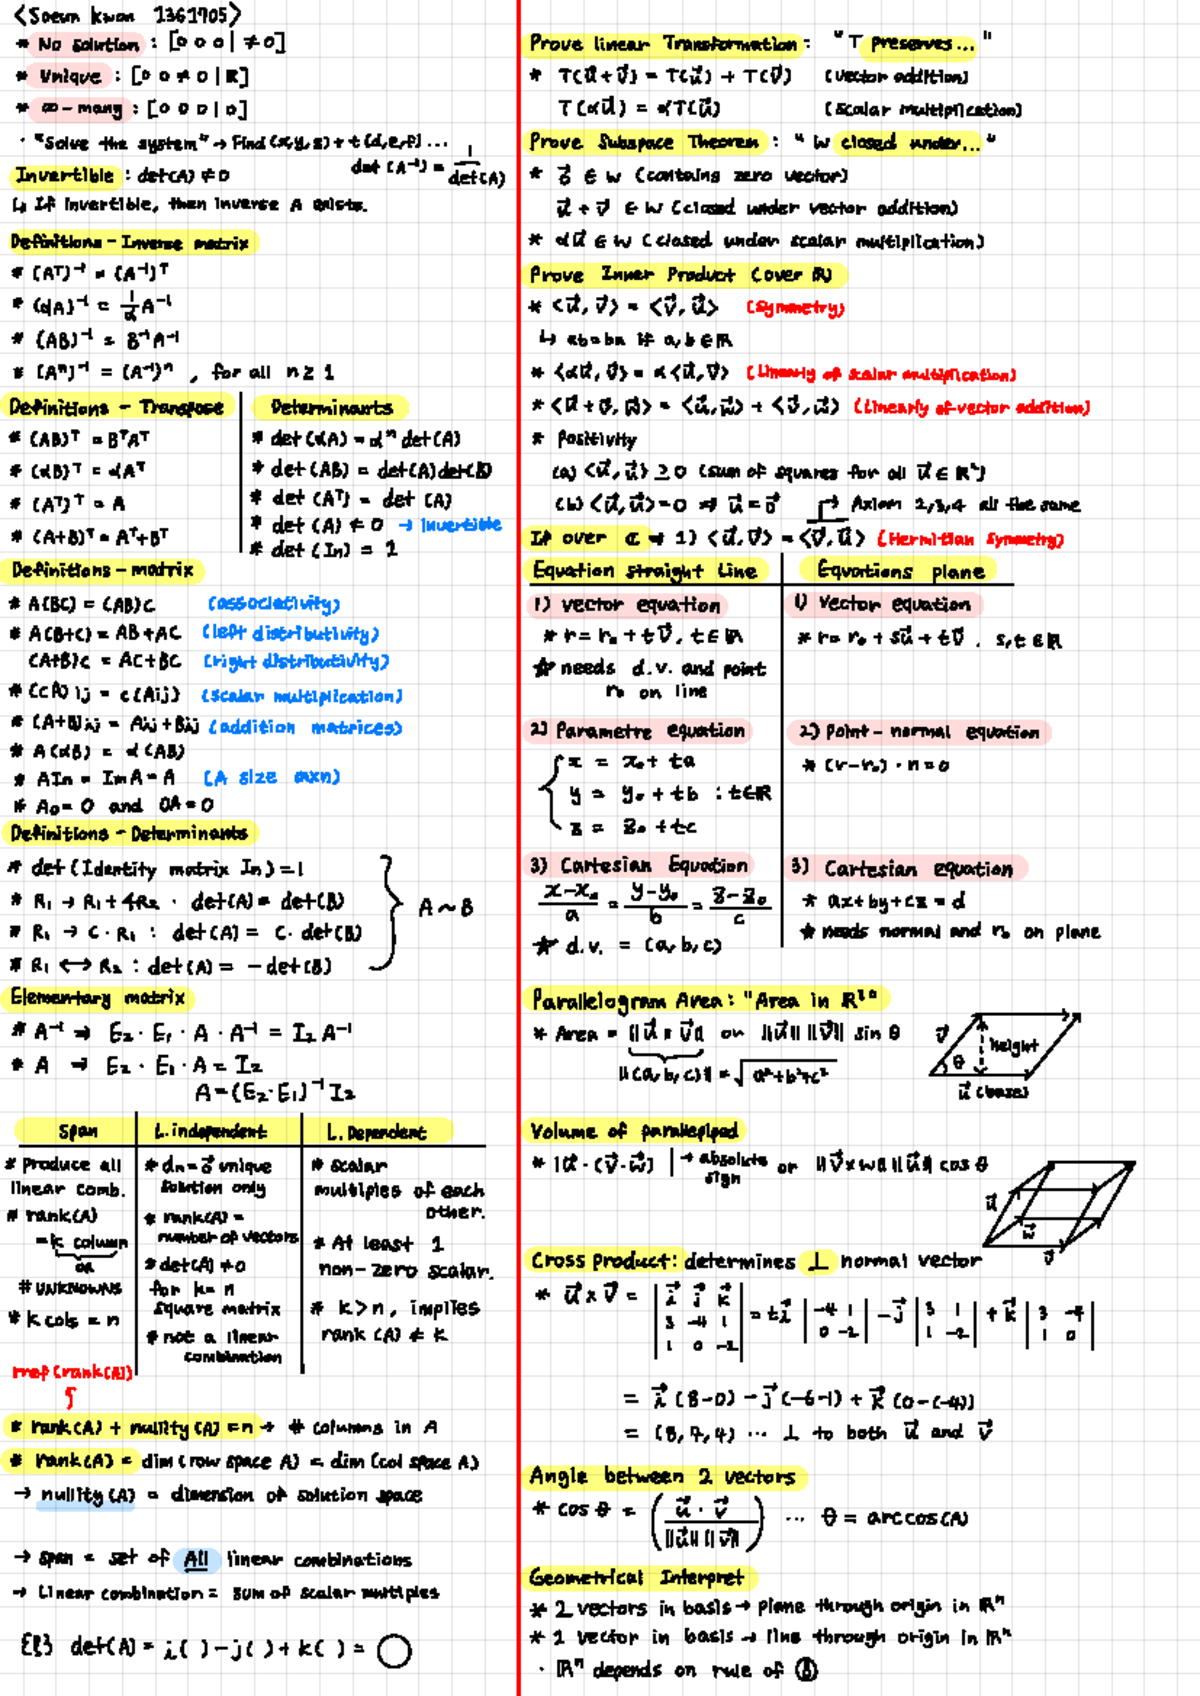 <Soeun Kwon 1361705>
* No solution : [0 0 0 | ≠0]
* Unique : [0 0 ≠0 | R]
* ∞-many : [0 0 0 | 0]
· "Solve the system" → Find (x,y,z) + t(d,e,f) ...
Invertible : det(A) ≠ 0
det(A⁻¹) = 1/det(A)
↳ If invertible, then inverse A exists.
Definitions - Inverse matrix
* (AT)⁻¹ = (A⁻¹)ᵀ
* (αA)⁻¹ = 1/α A⁻¹
* (AB)⁻¹ = B⁻¹A⁻¹
* (Aⁿ)⁻¹ = (A⁻¹)ⁿ , for all n ≥ 1
Definitions - Transpose
* (AB)ᵀ = BᵀAᵀ
* (αB)ᵀ = αAᵀ
* (Aᵀ)ᵀ = A
* (A+B)ᵀ = Aᵀ+Bᵀ
Determinants
* det(αA) = αⁿ det(A)
* det(AB) = det(A)det(B)
* det(AT) = det(A)
* det(A) ≠ 0 → Invertible
* det(In) = 1
Definitions - matrix
* A(BC) = (AB)C (associativity)
* A(B+C) = AB+AC (left distributivity)
(A+B)C = AC+BC (right distributivity)
* (cA)ij = c(Aij) (scalar multiplication)
* (A+B)ij = Aij+Bij (addition matrices)
* A(αB) = α(AB)
* AIn = ImA = A (A size mxn)
* A0 = 0 and 0A = 0
Definitions - Determinants
* det(Identity matrix In) = 1
* R₁ → R₁+4R₂ · det(A) = det(B)
* R₁ → C·R₁ : det(A) = C·det(B)
* R₁ ↔ R₂ : det(A) = -det(B)
A ~ B
Elementary matrix
* A⁻¹ ⇒ E₂·E₁·A·A⁻¹ = I₂A⁻¹
* A ⇒ E₂·E₁·A = I₂
A = (E₂·E₁)⁻¹I₂
Span
* Produce all
linear comb.
* rank(A)
= k column
or
# UNKNOWNS
* k cols = n
L.independent
* dn = 0⃗ unique
solution only
* rank(A) =
number of vectors
* det(A) ≠ 0
for k = n
square matrix
* not a linear
combination
L.Dependent
* scalar
multiples of each
other.
* At least 1
non-zero scalar.
* k > n, implies
rank(A) ≠ k
rref(rank(A))
* rank(A) + nullity(A) = n → # columns in A
* rank(A) = dim(row space A) = dim(col space A)
→ nullity(A) = dimension of solution space
→ span = set of All linear combinations
→ Linear combination = sum of scalar multiples
det(A) = i( ) - j( ) + k( ) = ◯
Prove linear Transformation : "T preserves..."
* T(u⃗+v⃗) = T(u⃗) + T(v⃗) (vector addition)
T(αu⃗) = αT(u⃗) (scalar multiplication)
Prove Subspace Theorem : "W closed under..."
* 0⃗ ∈ W (contains zero vector)
u⃗+v⃗ ∈ W (closed under vector addition)
* αu⃗ ∈ W (closed under scalar multiplication)
Prove Inner Product (over R)
* <u⃗, v⃗> = <v⃗, u⃗> (Symmetry)
↳ ab=ba if a,b∈R
* <αu⃗, v⃗> = α<u⃗, v⃗> (Linearly of scalar multiplication)
* <u⃗+v⃗, w⃗> = <u⃗,w⃗> + <v⃗,w⃗> (Linearly of vector addition)
* Positivity
(a) <u⃗,u⃗> ≥ 0 (sum of squares for all u⃗ ∈ R²)
(b) <u⃗,u⃗> = 0 ⇒ u⃗ = 0⃗
→ Axiom 2,3,4 all the same
If over C ⇒ 1) <u⃗,v⃗> = <v⃗,u⃗> (Hermitian Symmetry)
Equation straight Line
1) vector equation
* r = r₀ + tv⃗, t∈R
* needs d.v. and point
r₀ on line
2) Parametre equation
x = x₀ + ta
y = y₀ + tb : t∈R
z = z₀ + tc
3) Cartesian Equation
(x-x₀)/a = (y-y₀)/b = (z-z₀)/c
* d.v. = (a,b,c)
Equations plane
1) Vector equation
* r = r₀ + su⃗ + tv⃗ . s,t∈R
2) Point-normal equation
* (r-r₀)·n = 0
3) Cartesian equation
* ax+by+cz = d
* needs normal and r₀ on plane
Parallelogram Area: "Area in R³"
* Area = ||u⃗ x v⃗|| or ||u⃗|| ||v⃗|| sin θ
||(a,b,c)|| = √a²+b²+c²
v⃗
θ
height
u⃗ (base)
Volume of parallepiped
* |u⃗·(v⃗·w⃗)| → absolute sign or ||v⃗xw⃗|| ||u⃗|| cos θ
u⃗
w⃗
v⃗
Cross Product: determines ⊥ normal vector
* u⃗ x v⃗ = | i⃗ j⃗ k⃗ | 3 -4 1 | 1 0 -2 | = +i⃗ | -4 1 | 0 -2 | - j⃗ | 3 1 | 1 -2 | + k⃗ | 3 -4 | 1 0 |
= i⃗(8-0) - j⃗(-6-1) + k⃗(0-(-4))
= (8,7,4) ... ⊥ to both u⃗ and v⃗
Angle between 2 vectors
* cos θ = (u⃗·v⃗ / ||u⃗|| ||v⃗||) ... θ = arccos(A)
Geometrical Interpret
* 2 vectors in basis → plane through origin in Rⁿ
* 1 vector in basis → line through origin in Rⁿ
· Rⁿ depends on rule of Ⓑ